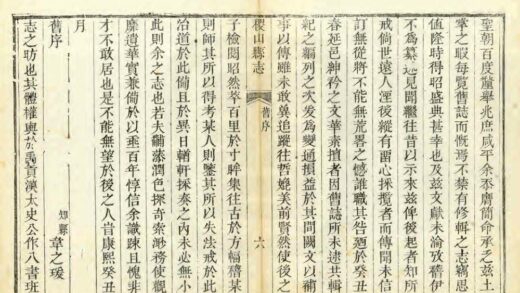 聖朝百度釐舉兆庶咸平余忝膺簡命承乏茲土
掌之暇每覽舊誌而慨焉不禁有修輯之志竊思
值隆時得昭盛典甚幸也及茲文獻未淪攷稽伊
不為纂述見聞繼往昔以示來茲俾後起者知所
戒倘世遠人湮後縱有留心採攬者而傳聞未信
訂無從將不能無荒畧之憾誰職其咎廼於癸丑
春延邑紳衿之文華素擅者因舊誌所未逮共輯
紀之瑣列之次爰為變通損益於其間闕文以補
事以傳雖未敢冀追蹤往哲媲美前賢然使後之
稷山縣志 舊序 六
子檢閱昭然萃百里於寸眸集往古於方幅稽某
則師其所以得考某人則鑒其所以失法戒於此
治道於此備且於異日輶軒採奏之內未必無小
此則余之志也若夫黼藻潤色探奇索渺務使觀
靡遺華實兼備於以垂百年惇信余識疎且愧非
才不敢居也是不能無望於後之人旹康熙癸丑
月
知縣 章之瑗
舊序
志之昉也其體權輿於禹貢漢太史公作八書班